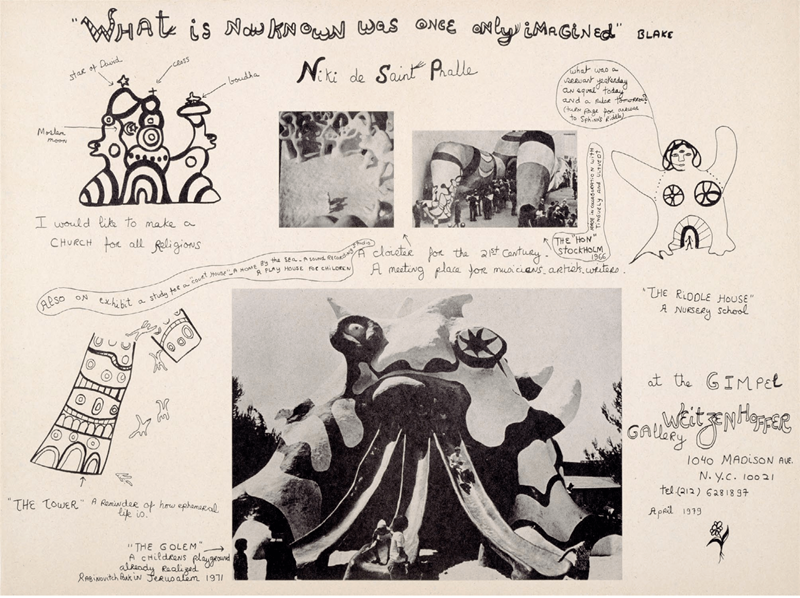 "WHAT is NOW KNOWN WAS ONCE ONLY iMAGiNED" BLAKE
Niki de Saint Phalle
star of David
cross
boudha
Moslem
moon
I would like to make a
CHURCH for all Religions
what was a
servant yesterday
an equal today
and a ruler tomorrow?
(turn page for answer
to Sphinx Riddle)
MADE IN COLLABORATION WITH
TINGUELY AND ULTVEDT
THE "HON"
STOCKHOLM
1966
A cloister for the 21st Century.
A meeting place for musicians, artists, writers.
Also on exhibit a study for a "court House" - A HOME BY THE SEA - A SOUND RECORDING studio
A PLAY HOUSE FOR CHILDREN
"THE RIDDLE HOUSE"
A NURSERY School
"THE TOWER" A Reminder of how ephemeral
life is.
"THE GOLEM"
A CHILDRENS playground
already Realized
Rabinovitch Park in Jerusalem 1971
at the GIMPEL
WEiTZENHOFFER
GALLERY
1040 MADISON AVE.
N.Y.C. 10021
tel. (212) 6281897
April 1979